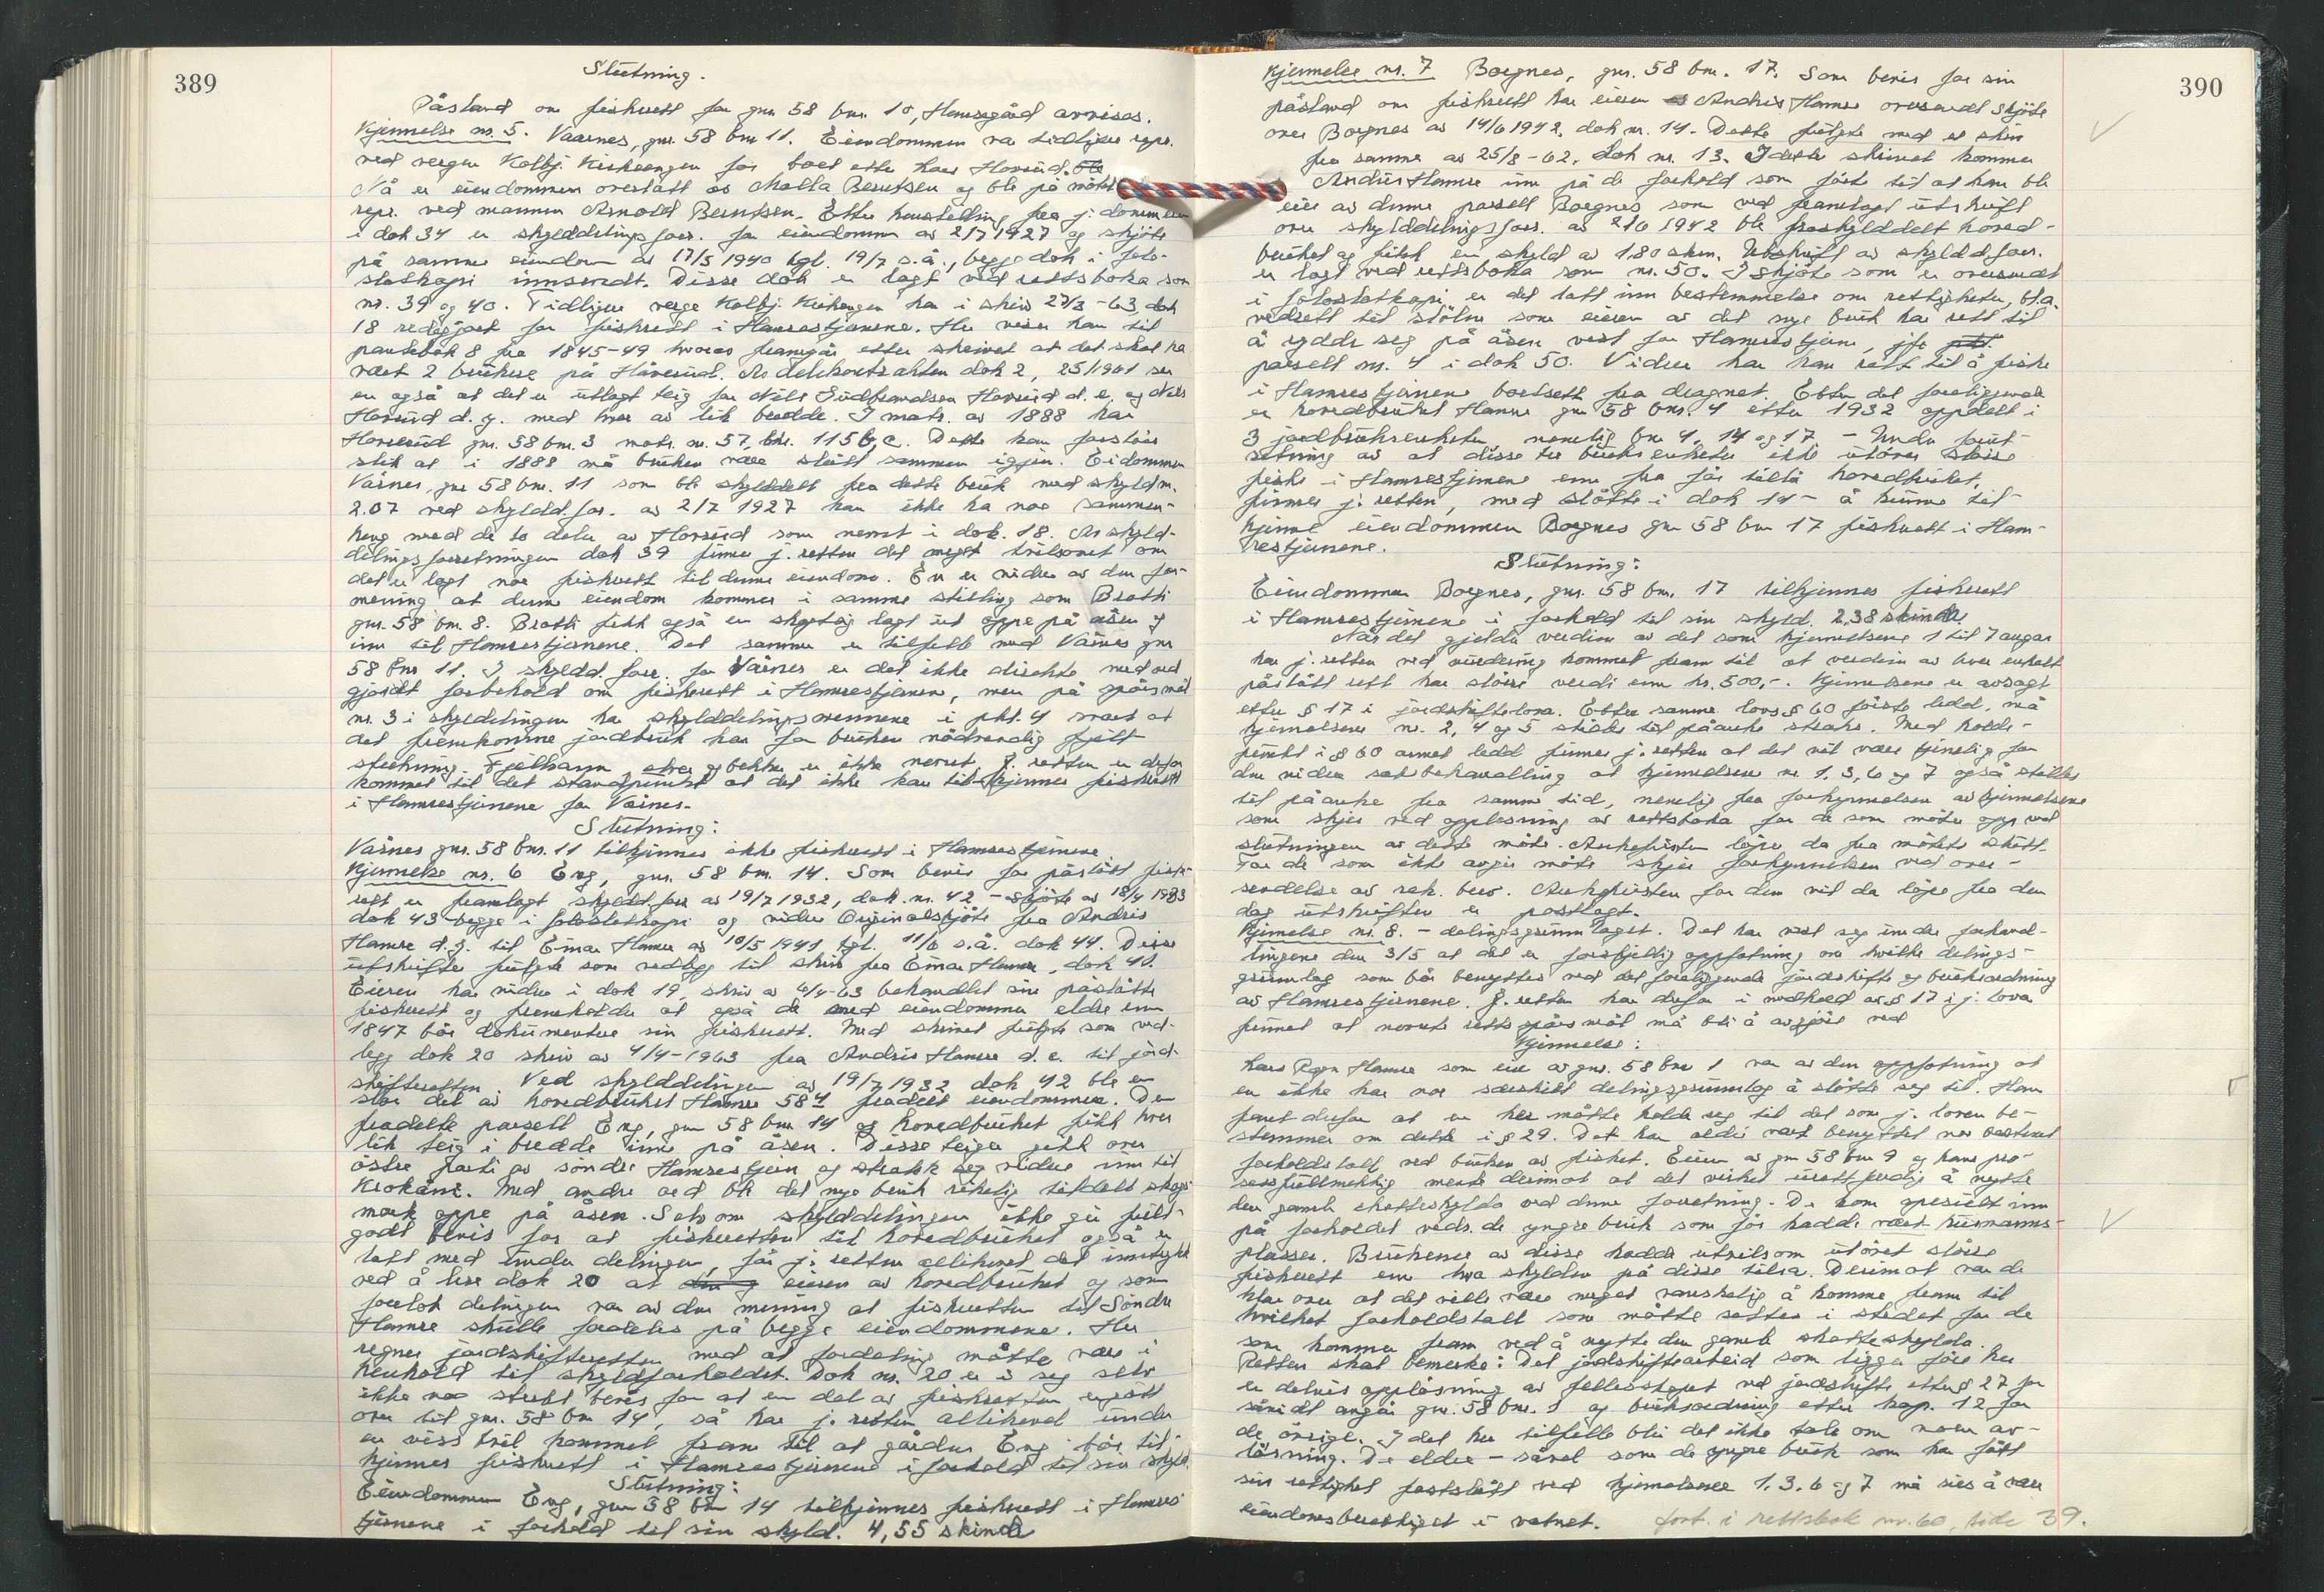 389
Slutning.
Påstand om fiskerett for gnr. 58 bnr. 10, Hamregård avvises.
Kjennelse nr. 5. Vaarnes, gnr. 58 bnr 11. Eiendommen var tidligere repr.
ved vergen Kolbj. Kirkeengen for boet etter Hans Horsrud.
Nå er eiendommen overtatt av Malla Berntsen og ble på møtet
repr. ved mannen Arnold Berntsen. Etter henstilling fra j. dommeren
i dok 34 er skylddelingsforr. for eiendommen av 2/7 1927 og skjøte
på samme eiendom av 17/5 1940 tgl. 19/7 s.å., begge dok i foto-
statkopi innsendt. Disse dok er lagt ved rettsboka som
nr. 39 og 40. Tidligere verge Kolbj. Kirkengen har i skriv 27/3 - 63 dok
18 redegjort for fiskerett i Hamrestjernene. Her viser han til
pantebok 8 fra 1845-49 hvorav framgår etter skrivet at det skal ha
vært 2 brukere på Horsrud. Av delekontrakten dok 2, 25/1901 ser
en også at det er utlagt teig for Nils Gudbrandsen Horsrud d. e. og Nils
Horsrud d. y. med hver av lik bredde. I matr. av 1888 har
Horsrud gnr. 58 bnr. 3 matr. nr. 57, lnr. 115 b, c. Dette kan forstås
slik at i 1888 må bruken være slått sammen igjen. Eidommen
Vårnes, gnr 58 bnr. 11 som ble skylddelt fra dette bruk med skyldm.
2.07 ved skyldd.for. av 2/7 1927 kan ikke ha noe sammen-
heng med de to deler av Horsrud som nevnt i dok. 18. Av skyld-
delingsforretningen dok 39 finner j. retten det meget tvilsomt om
det er lagt noe fiskerett til denne eiendom. En er videre av den for-
mening at denne eiendom kommer i samme stilling som Bratli
gnr. 58 bnr. 8. Bratli fikk også en skogteig lagt ut oppe på åsen og
inn til Hamrestjernene. Det samme er tilfelle med Vårnes gnr
58 bnr 11. I skyldd. forr. for Vårnes er det ikke direkte nedved
gjordt forbehold om fiskerett i Hamrestjernene, men på spørsmål
nr. 3 i skyldelingen har skylddelingsmennene i pkt. 4 svart at
det fremkomne jordbruk har for bruken nødvendig fjell-
strekning. Fjellvann, elver og bekker er ikke nevnt. J. retten er derfor
kommet til det standpunkt at det ikke kan tilkjennes fiskerett
i Hamrestjernene for Vårnes.
Slutning:
Vårnes gnr. 58 bnr. 11 tilkjennes ikke fiskerett i Hamrestjernene
Kjennelse nr. 6 Eng, gnr. 58 bnr. 14. Som bevis for påstått fiske-
rett er framlagt skyldd.forr av 19/7 1932, dok. nr. 42 - skjøte av 18/4 1933
dok 43 begge i fotostatkopi og videre Originalskjøte fra Andris
Hamre d. y. til Einar Hamre av 10/5 1941 tgl. 11/6 s.å. dok 44. Disse
utskrifter fulgte som vedlegg til skriv fra Einar Hamre, dok 41.
Eieren har videre i dok 19, skriv av 4/4-63 behandlet sin påståtte
fiskerett og fremholder at også de med eiendommer eldre enn
1847 bør dokumentere sin fiskerett. Med skrivet fulgte som ved-
legg dok 20 skriv av 4/4-1963 fra Andris Hamre d. e. til jord-
skifteretten. Ved skylddelingen av 19/7 1932 dok 42 ble en
stor del av hovedbruket Hamre 58 4 fradelt eiendommen. Den
fradelte parsell Eng, gnr 58 bnr 14 og hovedbruket fikk hver
lik teig i bredde inne på åsen. Disse teiger gikk over
østre parti av søndre Hamrestjern og strakk seg videre inn til
Krokåni. Med andre ord ble det nye bruk rikelig tildelt skog-
mark oppe på åsen. Selv om skylddelingen ikke gir full-
godt bevis for at fiskeretten til hovedbruket også er
tatt med under delingen, får j. retten allikevel det inntrykk
ved å lese dok 20 at eieren av hovedbruket og som
foretok delingen var av den mening at fiskeretten til Søndre
Hamre skulle fordeles på begge eiendommene. Her
regner jordskifteretten med at fordeling måtte være i
henhold til skyldforholdet. Dok nr. 20 er i seg selv
ikke noe strikt bevis for at en del av fiskeretten er gått
over til gnr. 58 bnr 14, så har j. retten allikevel under
en viss tvil kommet fram til at gården Eng bør til-
kjennes fiskerett i Hamrestjernene i forhold til sin skyld.
Slutning:
Eiendommen Eng, gnr 58 bnr 14 tilkjennes fiskerett i Hamres-
tjernene i forhold til sin skyld. 4,55 skinde
390
Kjennelse nr. 7 Borgnes, gnr. 58 bnr. 17. Som bevis for sin
påstand om fiskerett har eieren Andris Hamre oversendt skjøte
over Borgnes av 14/6 1942, dok nr. 14. Dette fulgte med et skriv
fra samme av 25/3 - 62, dok nr. 13. I dette skrivet kommer
Andris Hamre inn på de forhold som førte til at han ble
eier av denne parsell Borgnes som ved framlagt utskrift
over skylddelingsforr. av 2/6 1942 ble fraskylddelt hoved-
bruket og fikk en skyld av 1.80 skm. Utskrift av skyldd.forr.
er lagt ved rettsboka som nr. 50. I skjøte som er oversendt
i fotostatkopi er det tatt inn bestemmelse om rettigheter, bl.a.
vedrett til stølen som eieren av det nye bruk har rett til
å rydde seg på åsen vest for Hamrestjern, jfr
parsell nr. 4 i dok 50. Videre har han rett til å fiske
i Hamrestjernene bortsett fra dragnot. Etter det foreliggende
er hovedbruket Hamre gnr 58 bnr. 4 etter 1932 oppdelt i
3 jordbruksenheter, nemlig bnr 4, 14 og 17. - Under forut-
setning av at disse tre bruksenheter ikke utøver større
fiske i Hamrestjernene enn fra før tillå hovedbruket,
finner j. retten, med støtte i dok 14 - å kunne til-
kjenne eiendommen Borgnes gnr 58 bnr 17 fiskerett i Ham-
restjernene.
Slutning:
Eiendommen Borgnes, gnr. 58 bnr. 17 tilkjennes fiskerett
i Hamrestjernene i forhold til sin skyld. 2,38 skinde
Når det gjelder verdien av det som kjennelsene 1 til 7 angår
har j. retten ved vurdering kommet fram til at verdien av hver enkelt
påstått rett har større verdi enn kr. 500,-. Kjennelsene er avsagt
etter § 17 i jordskiftelova. Etter samme lovs § 60 første ledd, må
kjennelsene nr. 2, 4 og 5 stilles til påanke straks. Med holde-
punkt i § 60 annet ledd finner j. retten at det vil være tjenelig for
den videre saksbehandling at kjennelsene nr. 1, 3, 6 og 7 også stilles
til påanke fra samme tid, nemlig fra forkynnelsen av kjennelsene
som skjer ved opplesning av rettsboka for de som møter opp ved
slutningen av dette møte. Ankefristen løper da fra møtets slutt.
For de som ikke avgir møte skjer forkynnelsen ved over-
sendelse av rek. brev. Ankefristen for dem vil da løpe fra den
dag utskriften er postlagt.
Kjennelse nr. 8. - delingsgrunnlaget. Det har vist seg under forhand-
lingene den 3/5 at det er forskjellig oppfatning om hvilke delings-
grunnlag som bør benyttes ved det foreliggende jordskifte og bruksordning
av Hamrestjernene. J. retten har derfor i medhold av § 17 i j. lova
funnet at nevnte rettsspørsmål må bli å avgjøre ved
Kjennelse:
Hans Ragn Hamre som eier av gnr. 58 bnr 1 var av den oppfatning at
en ikke har noe særskilt delingsgrunnlag å støtte seg til. Han
fant derfor at en her måtte holde seg til det som j. loven be-
stemmer om dette i § 29. Det har aldri vært benyttet noe bestemt
forholdstall ved bruken av fisket. Eieren av gnr 58 bnr 9 og hans pro-
sessfullmektig mente derimot at det virket urettferdig å nytte
den gamle skatteskylda ved denne forretning. De kom spesielt inn
på forholdet vedr. de yngre bruk som før hadde vært husmanns-
plasser. Brukerne av disse hadde utvilsomt utøvet større
fiskerett enn hva skylden på disse tilsa. Derimot var de
klar over at det ville være meget vanskelig å komme fram til
hvilket forholdstall som måtte settes i stedet for de
som kommer fram ved å nytte den gamle skatteskylda.
Retten skal bemerke: Det jordskiftearbeid som ligger føre her
er delvis oppløsning av fellesskapet ved jordskifte etter § 27 for
såvidt angår gnr. 58 bnr. 1 og bruksordning etter kap. 12 for
de øvrige. I det her tilfelle blir det ikke tale om noen av-
løsning. De eldre - såvel som de yngre bruk som har fått
sin rettighet fastslått ved kjennelsene 1, 3, 6 og 7 må sies å være
eiendomsberettiget i vatnet. fort. i rettsbok nr. 60, side 39.